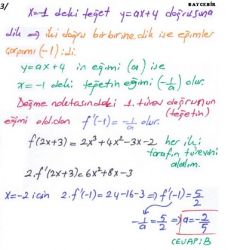 BAYÇEBİR
3/ x=-1 deki teğet y=ax+4 doğrusuna
dik ⇒ iki doğru birbirine dik ise eğimler
çarpımı (-1) idi
y=ax+4 in eğimi (a) ise
x=-1 deki teğetin eğimi (-1/a) olur.
Değme noktasındaki 1. türev doğrunun (teğetin)
eğimi old.dan f'(-1) = -1/a olur.
f(2x+3) = 2x³+4x²-3x-2 her iki tarafın türevini alalım.
2.f'(2x+3) = 6x²+8x-3
x=-2 için 2.f'(-1) = 24-16-3 ⇒ f'(-1) = 5/2
-1/a = 5/2 ⇒ a = -2/5
CEVAP: B